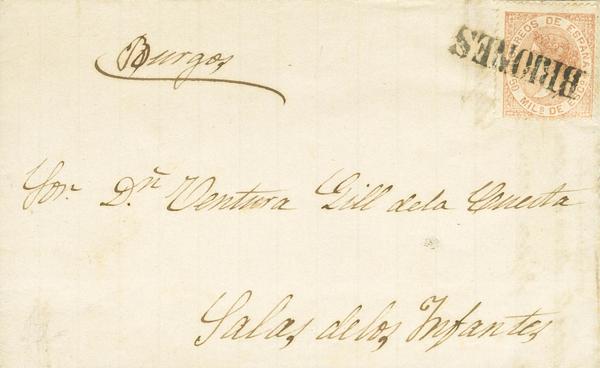 Burgos
CORREOS DE ESPAÑA
BRIONES
50 MILS DE ESCO
Sor. Dn. Ventura Gill dela Cuesta
Salas delos Infantes